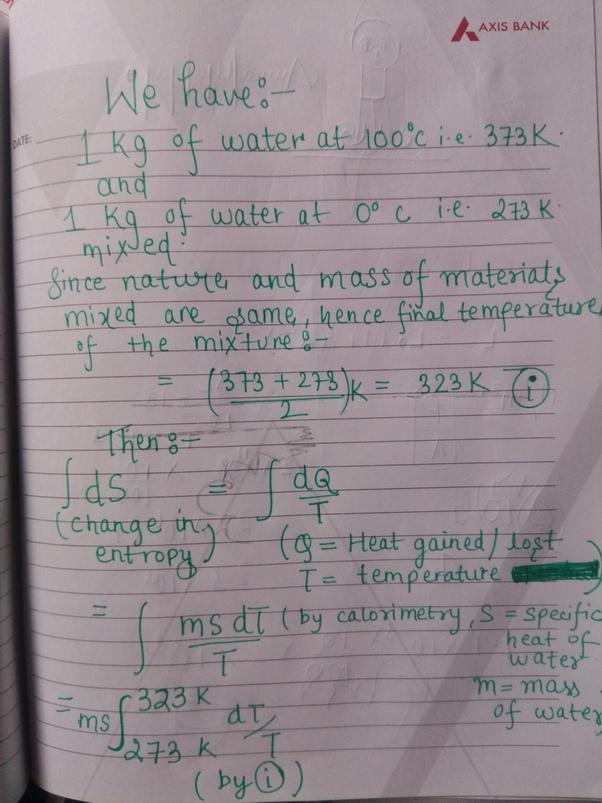 AXIS BANK
We have:-
DATE:
1 Kg of water at 100°c i.e. 373K.
and
1 Kg of water at 0° c i.e. 273 K.
mixed.
Since nature and mass of materials
mixed are same, hence final temperature
of the mixture :-
= (373 + 273/2)K = 323K (i)
Then:-
∫dS = ∫ dQ/T
(change in entropy) (Q = Heat gained/lost
T = temperature )
= ∫ ms dT/T (by calorimetry, S = specific
heat of
water
m = mass
of water
= ms ∫ 323 K 273 K dT/T
(by (i))